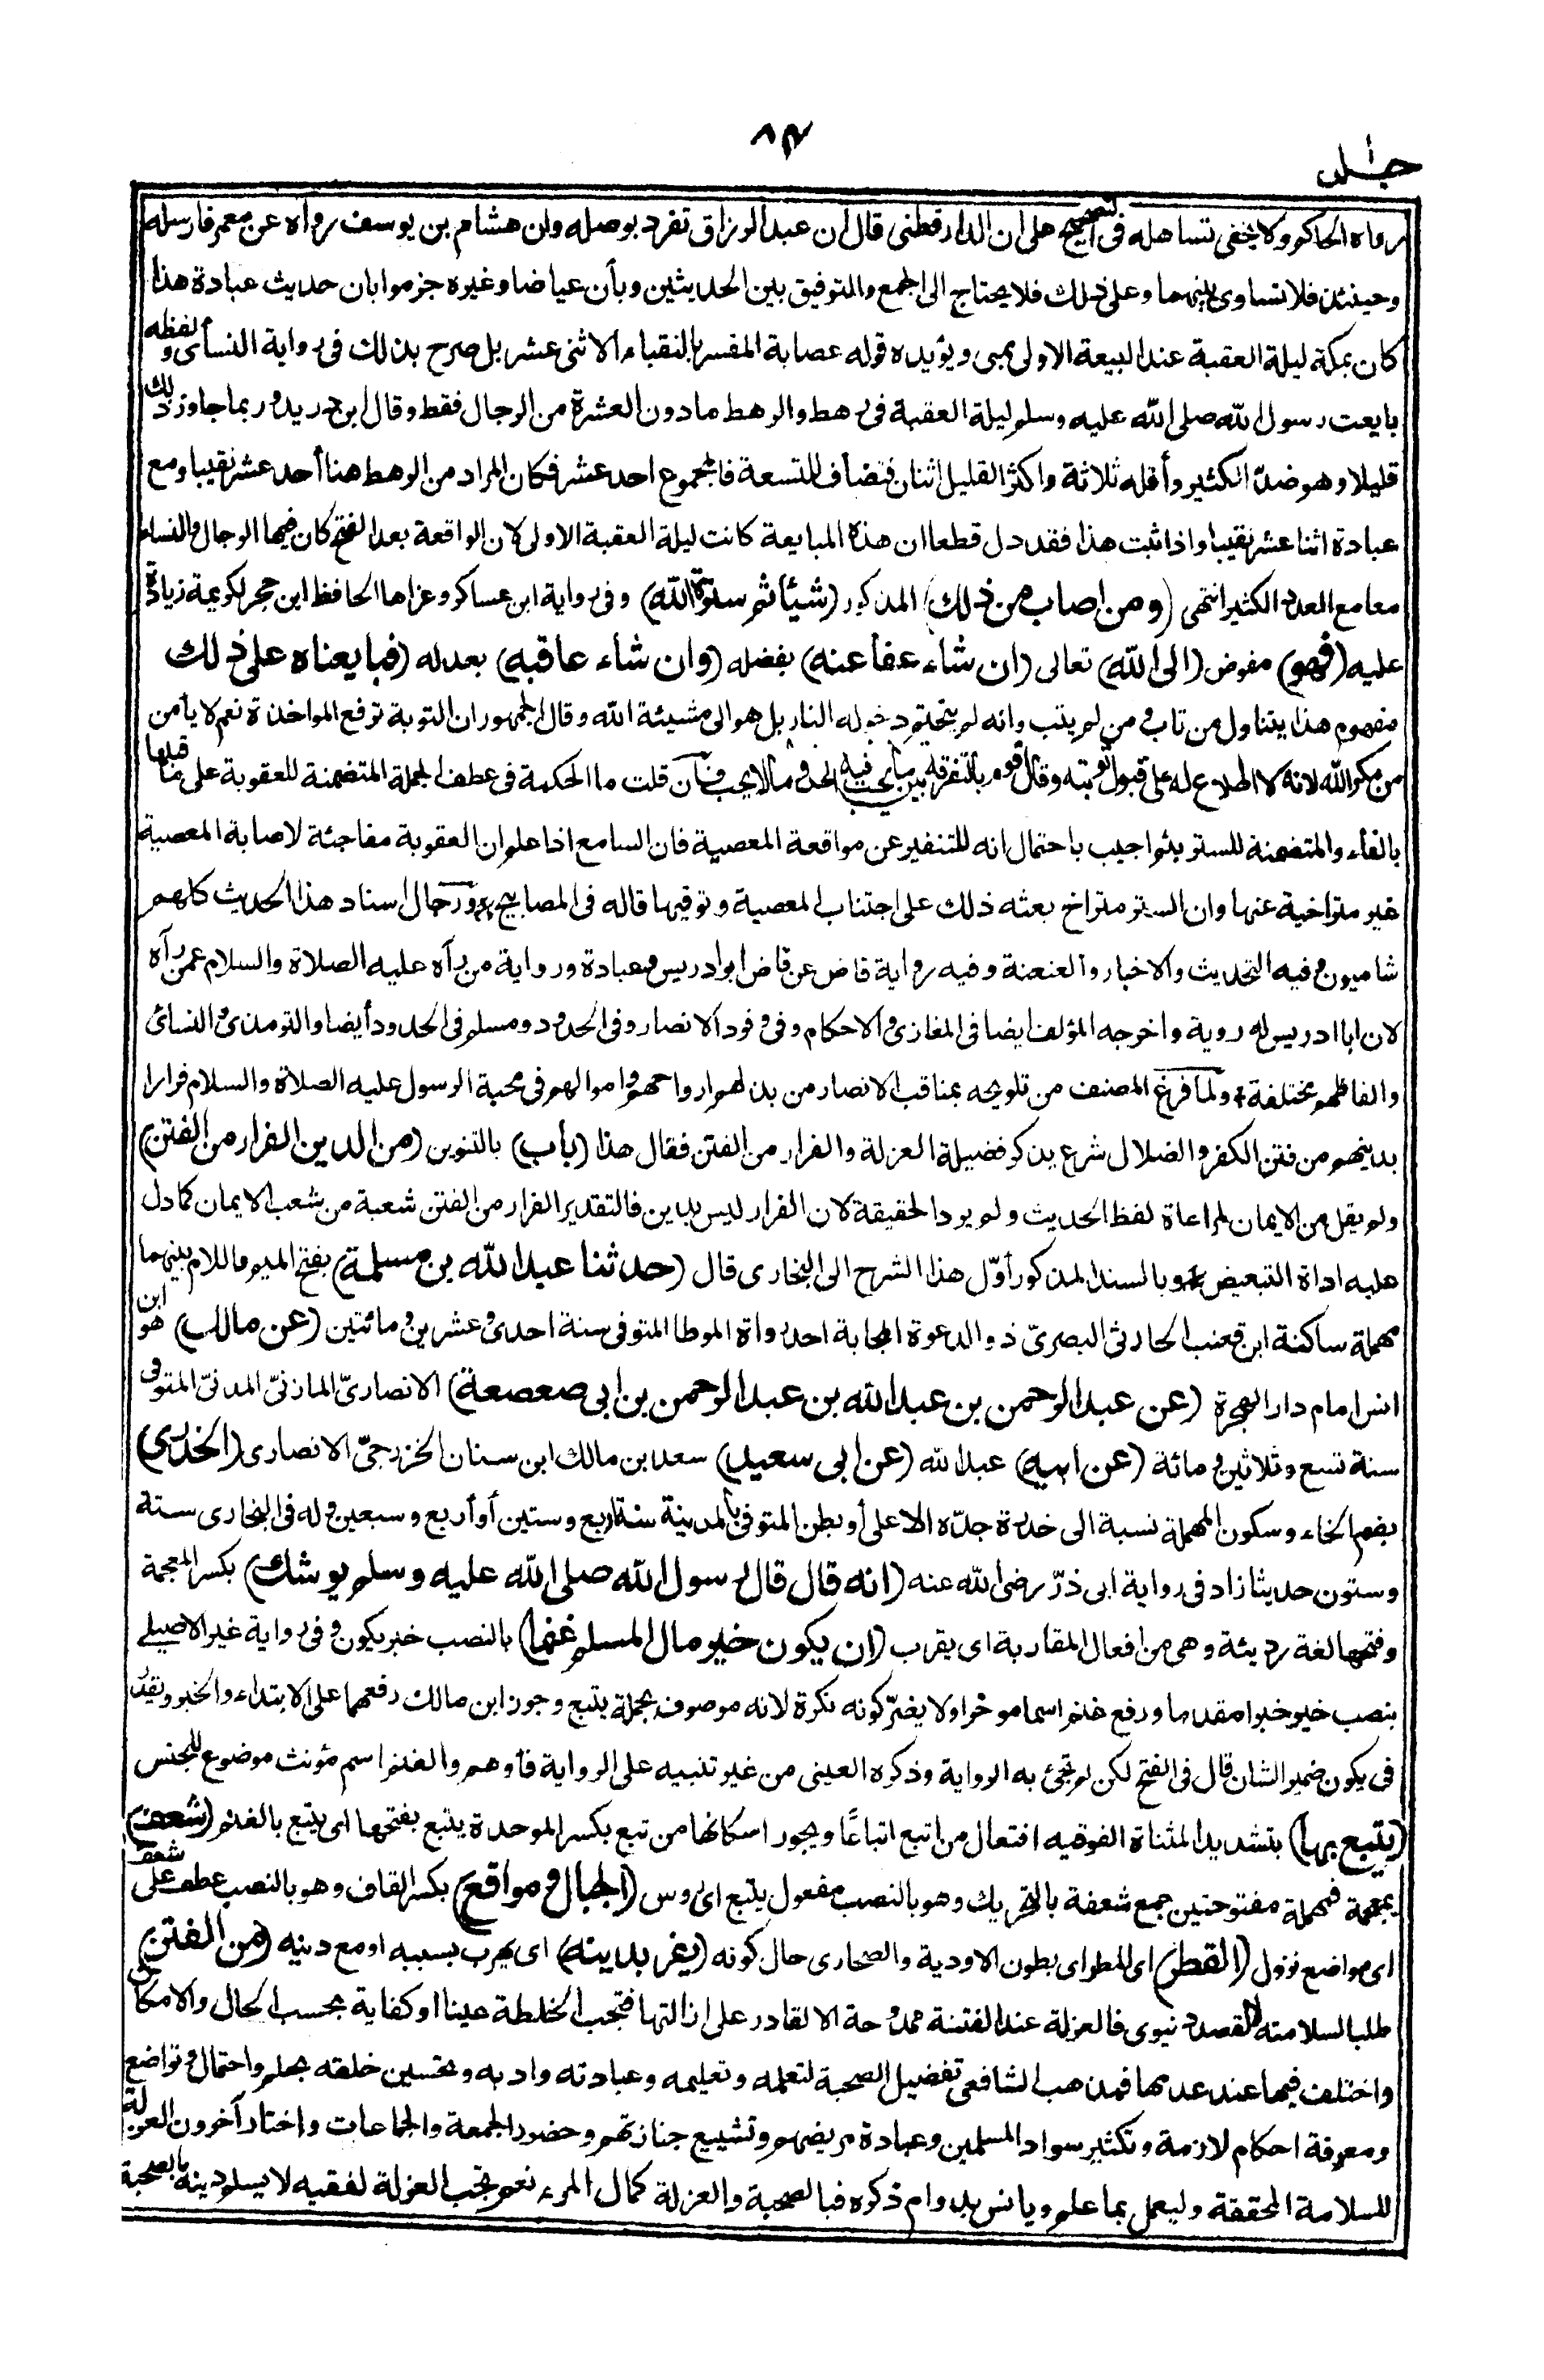 ٨٣
جلد ١
رواه الحاكم ولا يخفى تساهله فى التصحيح على ان الدارقطنى قال ان عبد الرزاق تفرد بوصله وان هشام بن يوسف رواه عن معمر فارسله
وحينئذ فلا تساوى بينهما وعلى ذلك فلا يحتاج الى الجمع والتوفيق بين الحديثين وبأن عياضا وغيره جزموا بان حديث عبادة هذا
كان بمكة ليلة العقبة عند البيعة الاولى بمنى ويؤيده قوله عصابة المفسر بالنقباء الاثنى عشر بل صرح بذلك فى رواية النسأى ولفظه
بايعت رسول الله صلى الله عليه وسلم ليلة العقبة فى رهط والرهط مادون العشرة من الرجال فقط وقال ابن دريد وربما جاوز ذلك
قليلا وهو ضدّ الكثير وأقله ثلاثة واكثر القليل اثنان فتضاف للتسعة فالمجموع احد عشر فكان المراد من الرهط هنا أحد عشر نقيبا ومع
عبادة اثنا عشر نقيبا واذا ثبت هذا فقد دل قطعا ان هذه المبايعة كانت ليلة العقبة الاولى لان الواقعة بعد الفتح كان فيها الرجال والنساء
معا مع العدد الكثير انتهى (ومن اصاب من ذلك) المذكور (شيئا ثم ستره الله) وفى رواية ابن عساكر وعزاها الحافظ ابن حجر لكريمة زيادة
عليه (فهو) مفوض (الى الله) تعالى (ان شاء عفا عنه) بفضله (وان شاء عاقبه) بعدله (فبايعناه على ذلك
مفهوم هذا يتناول من تاب ومن لم يتب وانه لم يتحتم دخوله النار بل هو الى مشيئة الله وقال الجمهور ان التوبة ترفع المواخذة نعم لا يأمن
من مكر الله لانه لا اطلاع له على قبول توبته وقال قوم بالتفرقة بين ما يجب فيه الحد وما لا يجب فان قلت ما الحكمة فى عطف الجملة المتضمنة للعقوبة على ما قبلها
بالفاء والمتضمنة للستر بثم اجيب باحتمال انه للتنفير عن مواقعة المعصية فان السامع اذا علم ان العقوبة مفاجئة لاصابة المعصية
غير متراخية عنها وان الستر متراخ بعثه ذلك على اجتناب المعصية وتوقيها قاله فى المصابيح ورجال اسناد هذا الحديث كلهم
شاميون وفيه التحديث والاخبار والعنعنة وفيه رواية قاض عن قاض ابو ادريس وعبادة ورواية من رآه عليه الصلاة والسلام عمن رآه
لان ابا ادريس له روية واخرجه المؤلف ايضا فى المغازى والاحكام وفى وفود الانصار وفى الحدود ومسلم فى الحدود أيضا والترمذى والنسائى
والفاظهم مختلفة ولما فرغ المصنف من تلويحه بمناقب الانصار من بذلهم ارواحهم واموالهم فى محبة الرسول عليه الصلاة والسلام فرارا
بدينهم من فتن الكفر والضلال شرع يذكر فضيلة العزلة والفرار من الفتن فقال هذا (باب) بالتنوين (من الدين الفرار من الفتن)
ولم يقل من الايمان لمراعاة لفظ الحديث ولم يرد الحقيقة لان الفرار ليس بدين فالتقدير الفرار من الفتن شعبة من شعب الايمان كما دل
عليه اداة التبعيض وبالسند المذكور أوّل هذا الشرح الى البخارى قال (حدثنا عبد الله بن مسلمة) بفتح الميم واللام بينهما
مهملة ساكنة ابن قعنب الحارثى البصرىّ ذو الدعوة المجابة احد رواة الموطا المتوفى سنة احدى وعشرين ومائتين (عن مالك) هو ابن
انس امام دار الهجرة (عن عبد الرحمن بن عبد الله بن عبد الرحمن بن ابى صعصعة) الانصارىّ المازنىّ المدنىّ المتوفى
سنة تسع وثلاثين ومائة (عن ابيه) عبد الله (عن ابى سعيد) سعد بن مالك ابن سنان الخزرجىّ الانصارى (الخدرى)
بضم الخاء وسكون المهملة نسبة الى خدرة جدّه الاعلى أو بطن المتوفى بالمدينة سنة اربع وستين أو أربع وسبعين وله فى البخارى ستة
وستون حديثا زاد فى رواية ابى ذرّ رضى الله عنه (انه قال قال رسول الله صلى الله عليه وسلم يوشك) بكسر المعجمة
وفتحها لغة رديئة وهى من افعال المقاربة اى يقرب (ان يكون خير مال المسلم غنما) بالنصب خبر يكون وفى رواية غير الاصيلى
بنصب خير خبرا مقدما ورفع غنم اسما موخرا ولا يضرّ كونه نكرة لانه موصوف بجملة يتبع وجوز ابن مالك رفعهما على الابتداء والخبر ويقدر
فى يكون ضمير الشان قال فى الفتح لكن لم تجئ به الرواية وذكره العينى من غير تنبيه على الرواية فأوهم والغنم اسم مؤنث موضوع للجنس
(يتبع بها) بتشديد المثناة الفوقيه افتعال من اتبع اتباعًا ويجوز اسكانها من تبع بكسر الموحدة يتبع بفتحها اى يتبع بالغنم (شعف)
بمعجمة فمهملة مفتوحتين جمع شعفة بالتحريك وهو بالنصب مفعول يتبع اى روس (الجبال ومواقع) بكسر القاف وهو بالنصب عطف على شعف
اى مواضع نزول (القطر) اى المطر اى بطون الاودية والصحارى حال كونه (يفر بدينه) اى يهرب بسببه او مع دينه (من الفتن)
طلبا لسلامته لا لقصد دنيوى فالعزلة عند الفتنة ممدوحة الا لقادر على ازالتها فتجب الخلطة عينا او كفاية بحسب الحال والامكان
واختلف فيها عند عدمها فمذهب الشافعى تفضيل الصحبة لتعلمه وتعليمه وعبادته وادبه وتحسين خلقه بحلم واحتمال وتواضع
ومعرفة احكام لازمة وتكثير سواد المسلمين وعيادة مريضهم وتشييع جنازتهم وحضور الجمعة والجماعات واختار آخرون العزلة
للسلامة المحققة وليعمل بما علم ويانس بدوام ذكره فبالصحبة والعزلة كمال المرء نعم تجب العزلة لفقيه لا يسلم دينه بالصحبة